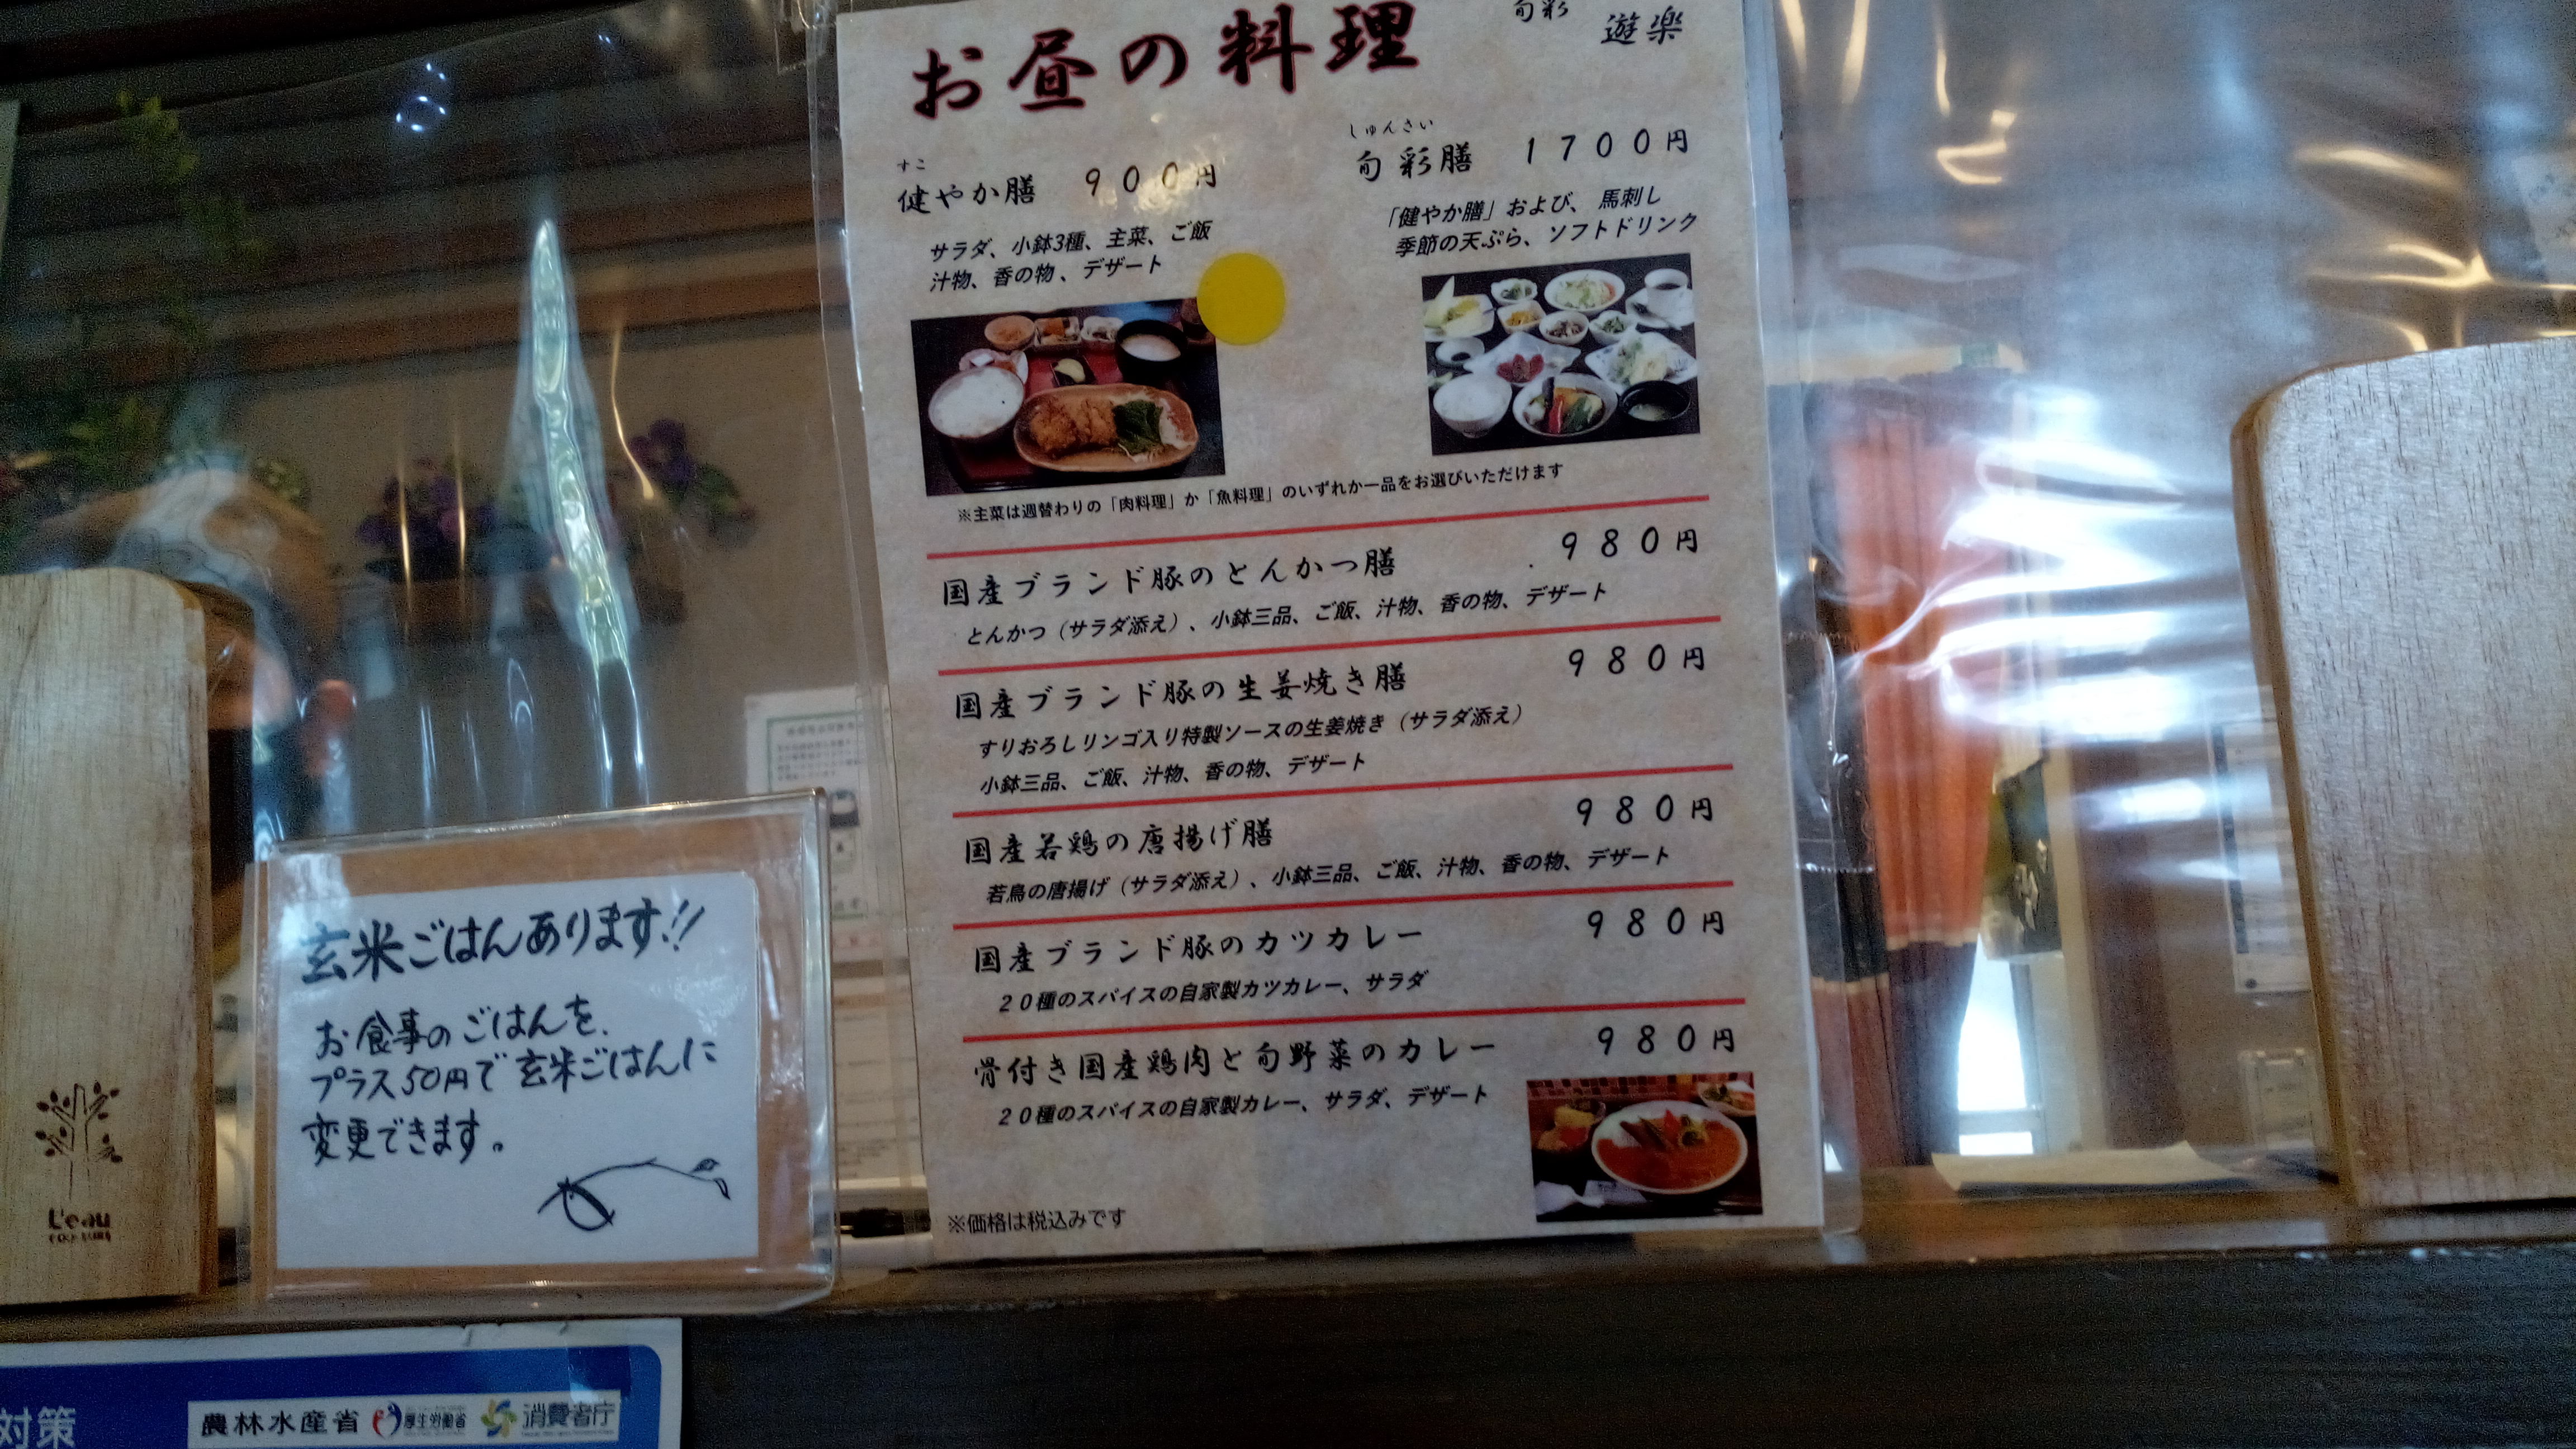 お昼の料理
旬彩 遊楽
すこ
健やか膳 900円
サラダ、小鉢3種、主菜、ご飯
汁物、香の物、デザート
しゅんさい
旬彩膳 1700円
「健やか膳」および、馬刺し
季節の天ぷら、ソフトドリンク
※主菜は週替わりの「肉料理」か「魚料理」のいずれか一品をお選びいただけます
国産ブランド豚のとんかつ膳 980円
とんかつ（サラダ添え）、小鉢三品、ご飯、汁物、香の物、デザート
国産ブランド豚の生姜焼き膳 980円
すりおろしリンゴ入り特製ソースの生姜焼き（サラダ添え）
小鉢三品、ご飯、汁物、香の物、デザート
国産若鶏の唐揚げ膳 980円
若鳥の唐揚げ（サラダ添え）、小鉢三品、ご飯、汁物、香の物、デザート
国産ブランド豚のカツカレー 980円
20種のスパイスの自家製カツカレー、サラダ
骨付き国産鶏肉と旬野菜のカレー 980円
20種のスパイスの自家製カレー、サラダ、デザート
※価格は税込みです
玄米ごはんあります!!
お食事のごはんを、
プラス50円で玄米ごはんに
変更できます。
L'eau
対策
農林水産省 厚生労働省 消費者庁